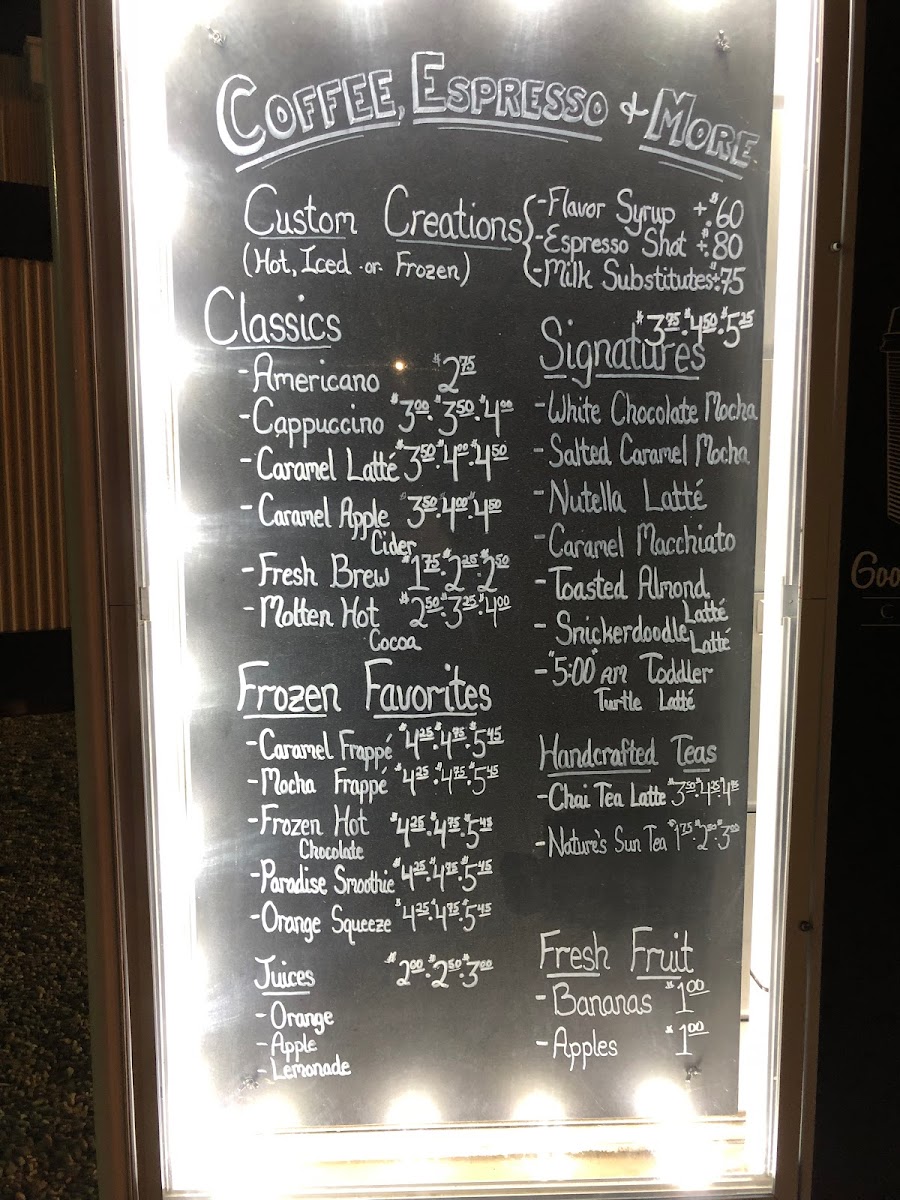 COFFEE, ESPRESSO & MORE
Custom Creations
(Hot, Iced or Frozen)
- Flavor Syrup +$.60
- Espresso Shot +$.80
- Milk Substitutes +$.75
Classics
- Americano $2.75
- Cappuccino $3.00 · $3.50 · $4.00
- Caramel Latté $3.50 · $4.00 · $4.50
- Caramel Apple $3.50 · $4.00 · $4.50
Cider
- Fresh Brew $1.75 · $2.25 · $2.50
- Molten Hot $2.50 · $3.25 · $4.00
Cocoa
Frozen Favorites
- Caramel Frappé $4.25 · $4.75 · $5.45
- Mocha Frappé $4.25 · $4.75 · $5.45
- Frozen Hot $4.25 · $4.75 · $5.45
Chocolate
- Paradise Smoothie $4.25 · $4.75 · $5.45
- Orange Squeeze $4.25 · $4.75 · $5.45
Juices $2.00 · $2.50 · $3.00
- Orange
- Apple
- Lemonade
$3.75 · $4.50 · $5.25
Signatures
- White Chocolate Mocha
- Salted Caramel Mocha
- Nutella Latté
- Caramel Macchiato
- Toasted Almond
Latté
- Snickerdoodle
Latté
- "5:00" AM Toddler
Turtle Latté
Handcrafted Teas
- Chai Tea Latte $3.50 · $4.25 · $4.75
- Nature's Sun Tea $1.75 · $2.50 · $3.00
Fresh Fruit
- Bananas $1.00
- Apples $1.00
Goo